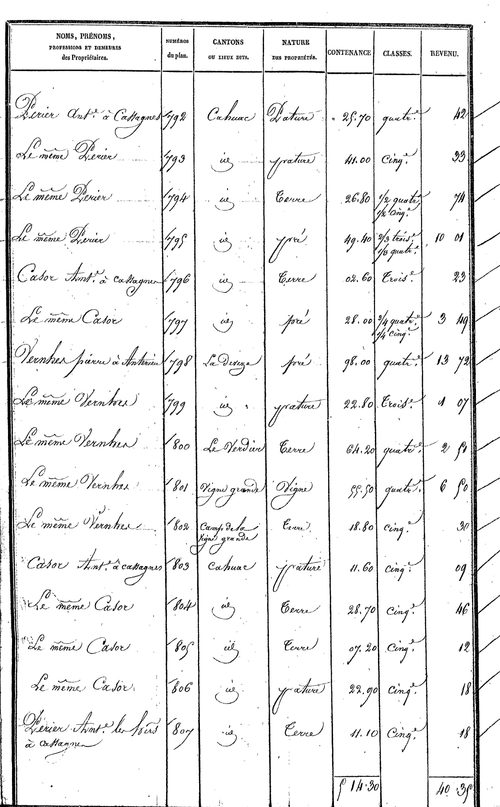 NOMS, PRÉNOMS, PROFESSIONS ET DEMEURES des Propriétaires. NUMÉROS du plan. CANTONS OU LIEUX DITS. NATURE DES PROPRIÉTÉS. CONTENANCE CLASSES. REVENU.
Périer Ant.e à Castagnes 792 Cahuac Pature 25.70 quatr.e 42
Le même Périer 793 id pature 41.00 Cinq.e 33
Le même Périer 794 id Terre 26.80 1/2 quatr.e 1/2 cinq.e 74
Le même Périer 795 id pré 49.40 2/3 trois.e 1/3 quatr.e 10 01
Casor Ant.e à castagnes 796 id Terre 02.60 Trois.e 23
Le même Casor 797 id pré 28.00 3/4 quatr.e 1/4 cinq.e 3 49
Vernhes pierre à Anterieu 798 La deveze pré 98.00 quatr.e 13 72
Le même Vernhes 799 id pature 22.80 Trois.e 1 07
Le même Vernhes 800 Le Verdier Terre 64.20 quatr.e 2 51
Le même Vernhes 801 Vigne grande Vigne 55.50 quatr.e 6 50
Le même Vernhes 802 Camp de la Vigne grande Terre 18.80 cinq.e 30
Casor Ant.e à castagnes 803 Cahuac pature 11.60 cinq.e 09
Le même Casor 804 id Terre 28.70 Cinq.e 46
Le même Casor 805 id Terre 07.20 Cinq.e 12
Le même Casor 806 id pature 22.90 Cinq.e 18
Périer Ant.e les hoirs à castagnes 807 id Terre 11.10 Cinq.e 18
5 14.30 40.35